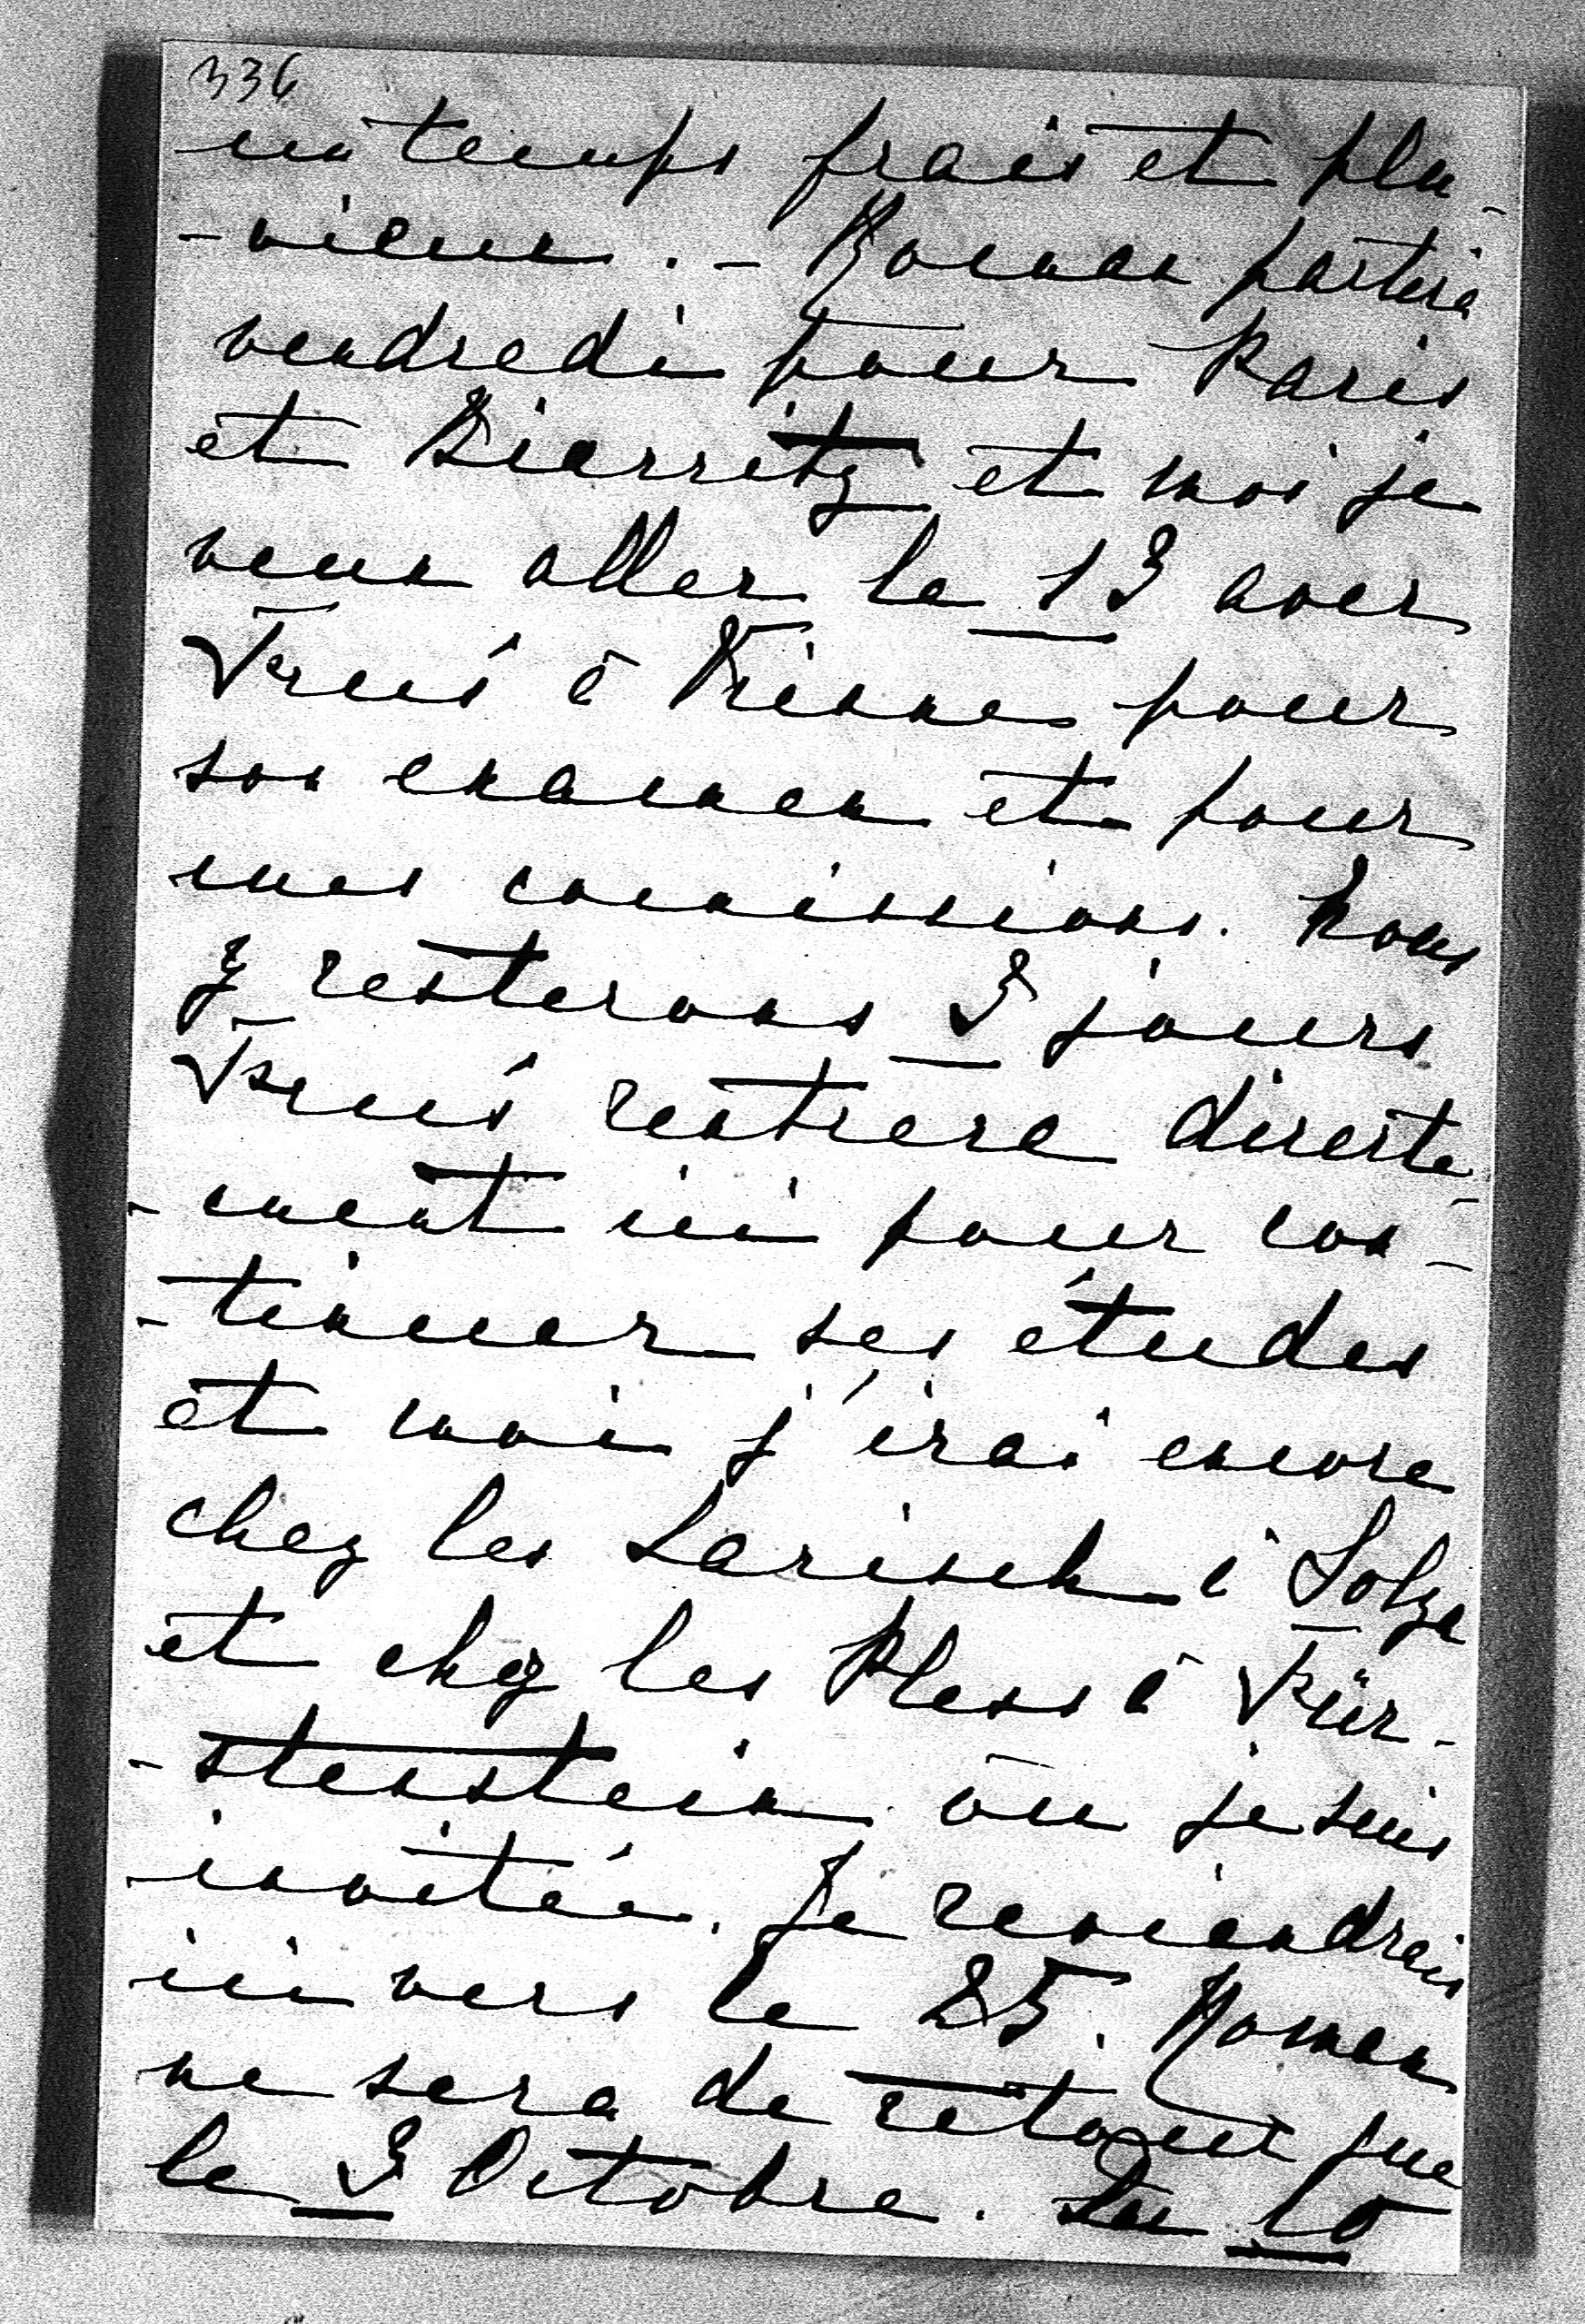 336
un temps frais et plu-
-vieux. - Roman partira
vendredi pour Paris
et Biarritz et moi je
veux aller le 13 avec
à Vienne pour
son examen et pour
mes commissions. Nous
y resterons 3 jours
rentrera directe-
-ment ici pour con-
-tinuer ses études
et moi j'irai encore
chez les Larisch à Solza
et chez les Pless à Für-
-stenstein où je suis
invitée. Je reviendrais
ici vers le 25. Roman
ne sera de retour que
le 3 Octobre. Le 10